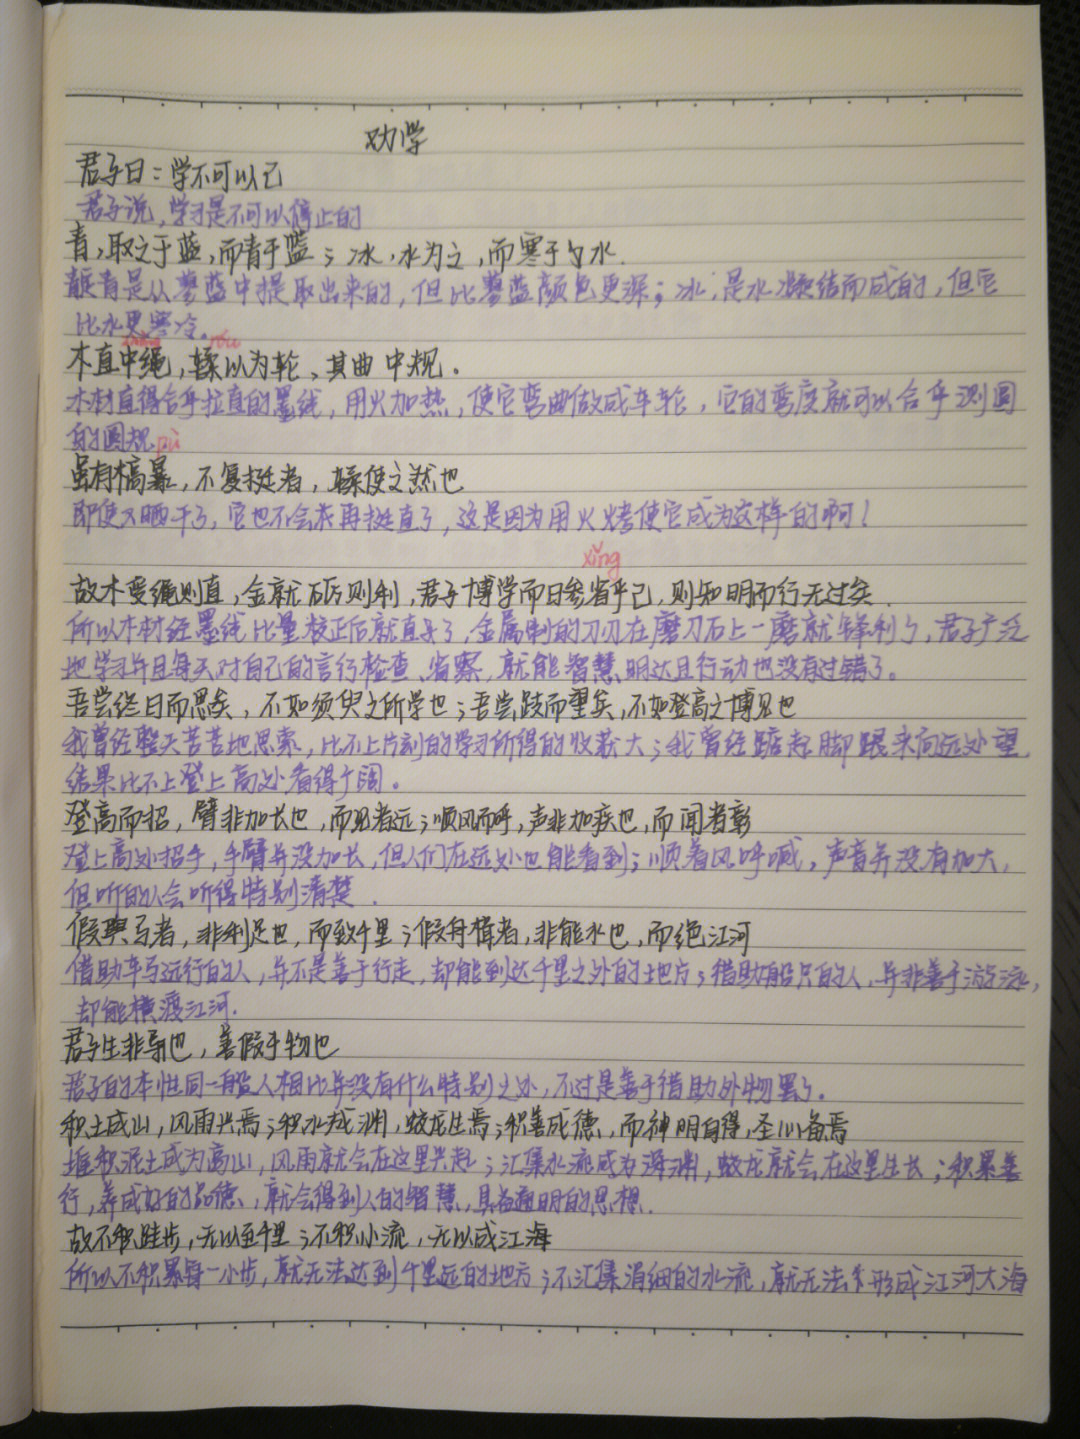 劝学
君子曰：学不可以已
君子说，学习是不可以停止的
青，取之于蓝，而青于蓝；冰，水为之，而寒于水.
靛青是从蓼蓝中提取出来的，但比蓼蓝颜色更深；冰，是水凝结而成的，但它
比水更寒冷。
zhòng róu
木直中绳，輮以为轮，其曲中规。
木材直得合乎拉直的墨线，用火加热，使它弯曲做成车轮，它的弯度就可以合乎测圆
的圆规. pù
虽有槁暴，不复挺者，輮使之然也
即使又晒干了，它也不会再挺直了，这是因为用火烤使它成为这样的啊！
xǐng
故木受绳则直，金就砺则利，君子博学而日参省乎己，则知明而行无过矣.
所以木材经墨线比量校正后就直了，金属制的刀刃在磨刀石上一磨就锋利了，君子广泛
地学习并且每天对自己的言行检查、省察，就能智慧明达且行动也没有过错了。
吾尝终日而思矣，不如须臾之所学也；吾尝跂而望矣，不如登高之博见也
我曾经整天苦苦地思索，比不上片刻的学习所得的收获大；我曾经踮起脚跟来向远处望
结果比不上登上高处看得广阔。
登高而招，臂非加长也，而见者远；顺风而呼，声非加疾也，而闻者彰
登上高处招手，手臂并没加长，但人们在远处也能看到；顺着风呼喊，声音并没有加大，
但听的人会听得特别清楚.
假舆马者，非利足也，而致千里；假舟楫者，非能水也，而绝江河
借助车马远行的人，并不是善于行走，却能到达千里之外的地方；借助船只的人，并非善于游泳，
却能横渡江河.
君子生非异也，善假于物也
君子的本性同一般人相比并没有什么特别之处，不过是善于借助外物罢了。
积土成山，风雨兴焉；积水成渊，蛟龙生焉；积善成德，而神明自得，圣心备焉
堆积泥土成为高山，风雨就会在这里兴起；汇集水流成为深渊，蛟龙就会在这里生长；积累善
行，养成好的品德，就会得到人的智慧，具备通明的思想.
故不积跬步，无以至千里；不积小流，无以成江海
所以不积累每一小步，就无法达到千里远的地方；不汇集涓细的水流，就无法形成江河大海